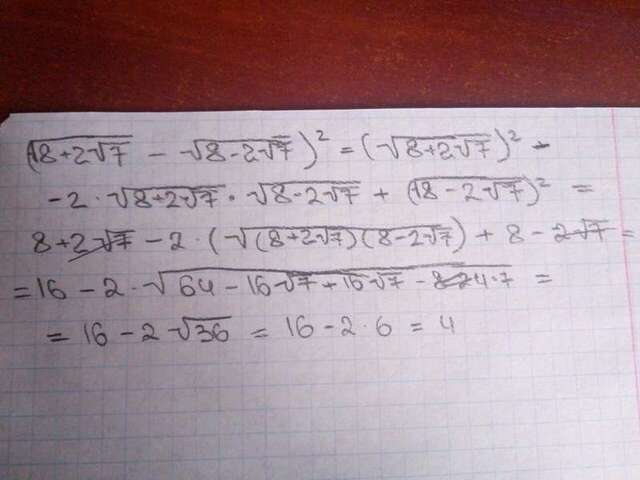 (√(8+2√7) - √(8-2√7))² = (√(8+2√7))² -
-2·√(8+2√7)·√(8-2√7) + (√(8-2√7))² =
8+2√7 - 2·(√((8+2√7)(8-2√7)) + 8 - 2√7 =
= 16 - 2·√(64 - 16√7 + 16√7 - 4·7) =
= 16 - 2√36 = 16 - 2·6 = 4